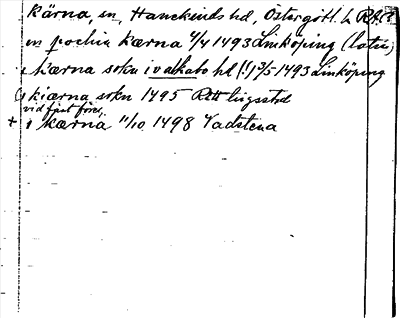 Kärna, sn, Hanekinds hd, Östergötl. L RAP?
in pochia Kærna 4/4 1493 Linköping (latin)
i Kærna sokn i valkabo hd (!) 3/5 1493 Linköping
i kiærna sokn 1495 Rättlingsstad
vid just föreg.
+ i Kærnä 11/10 1498 Vadstena